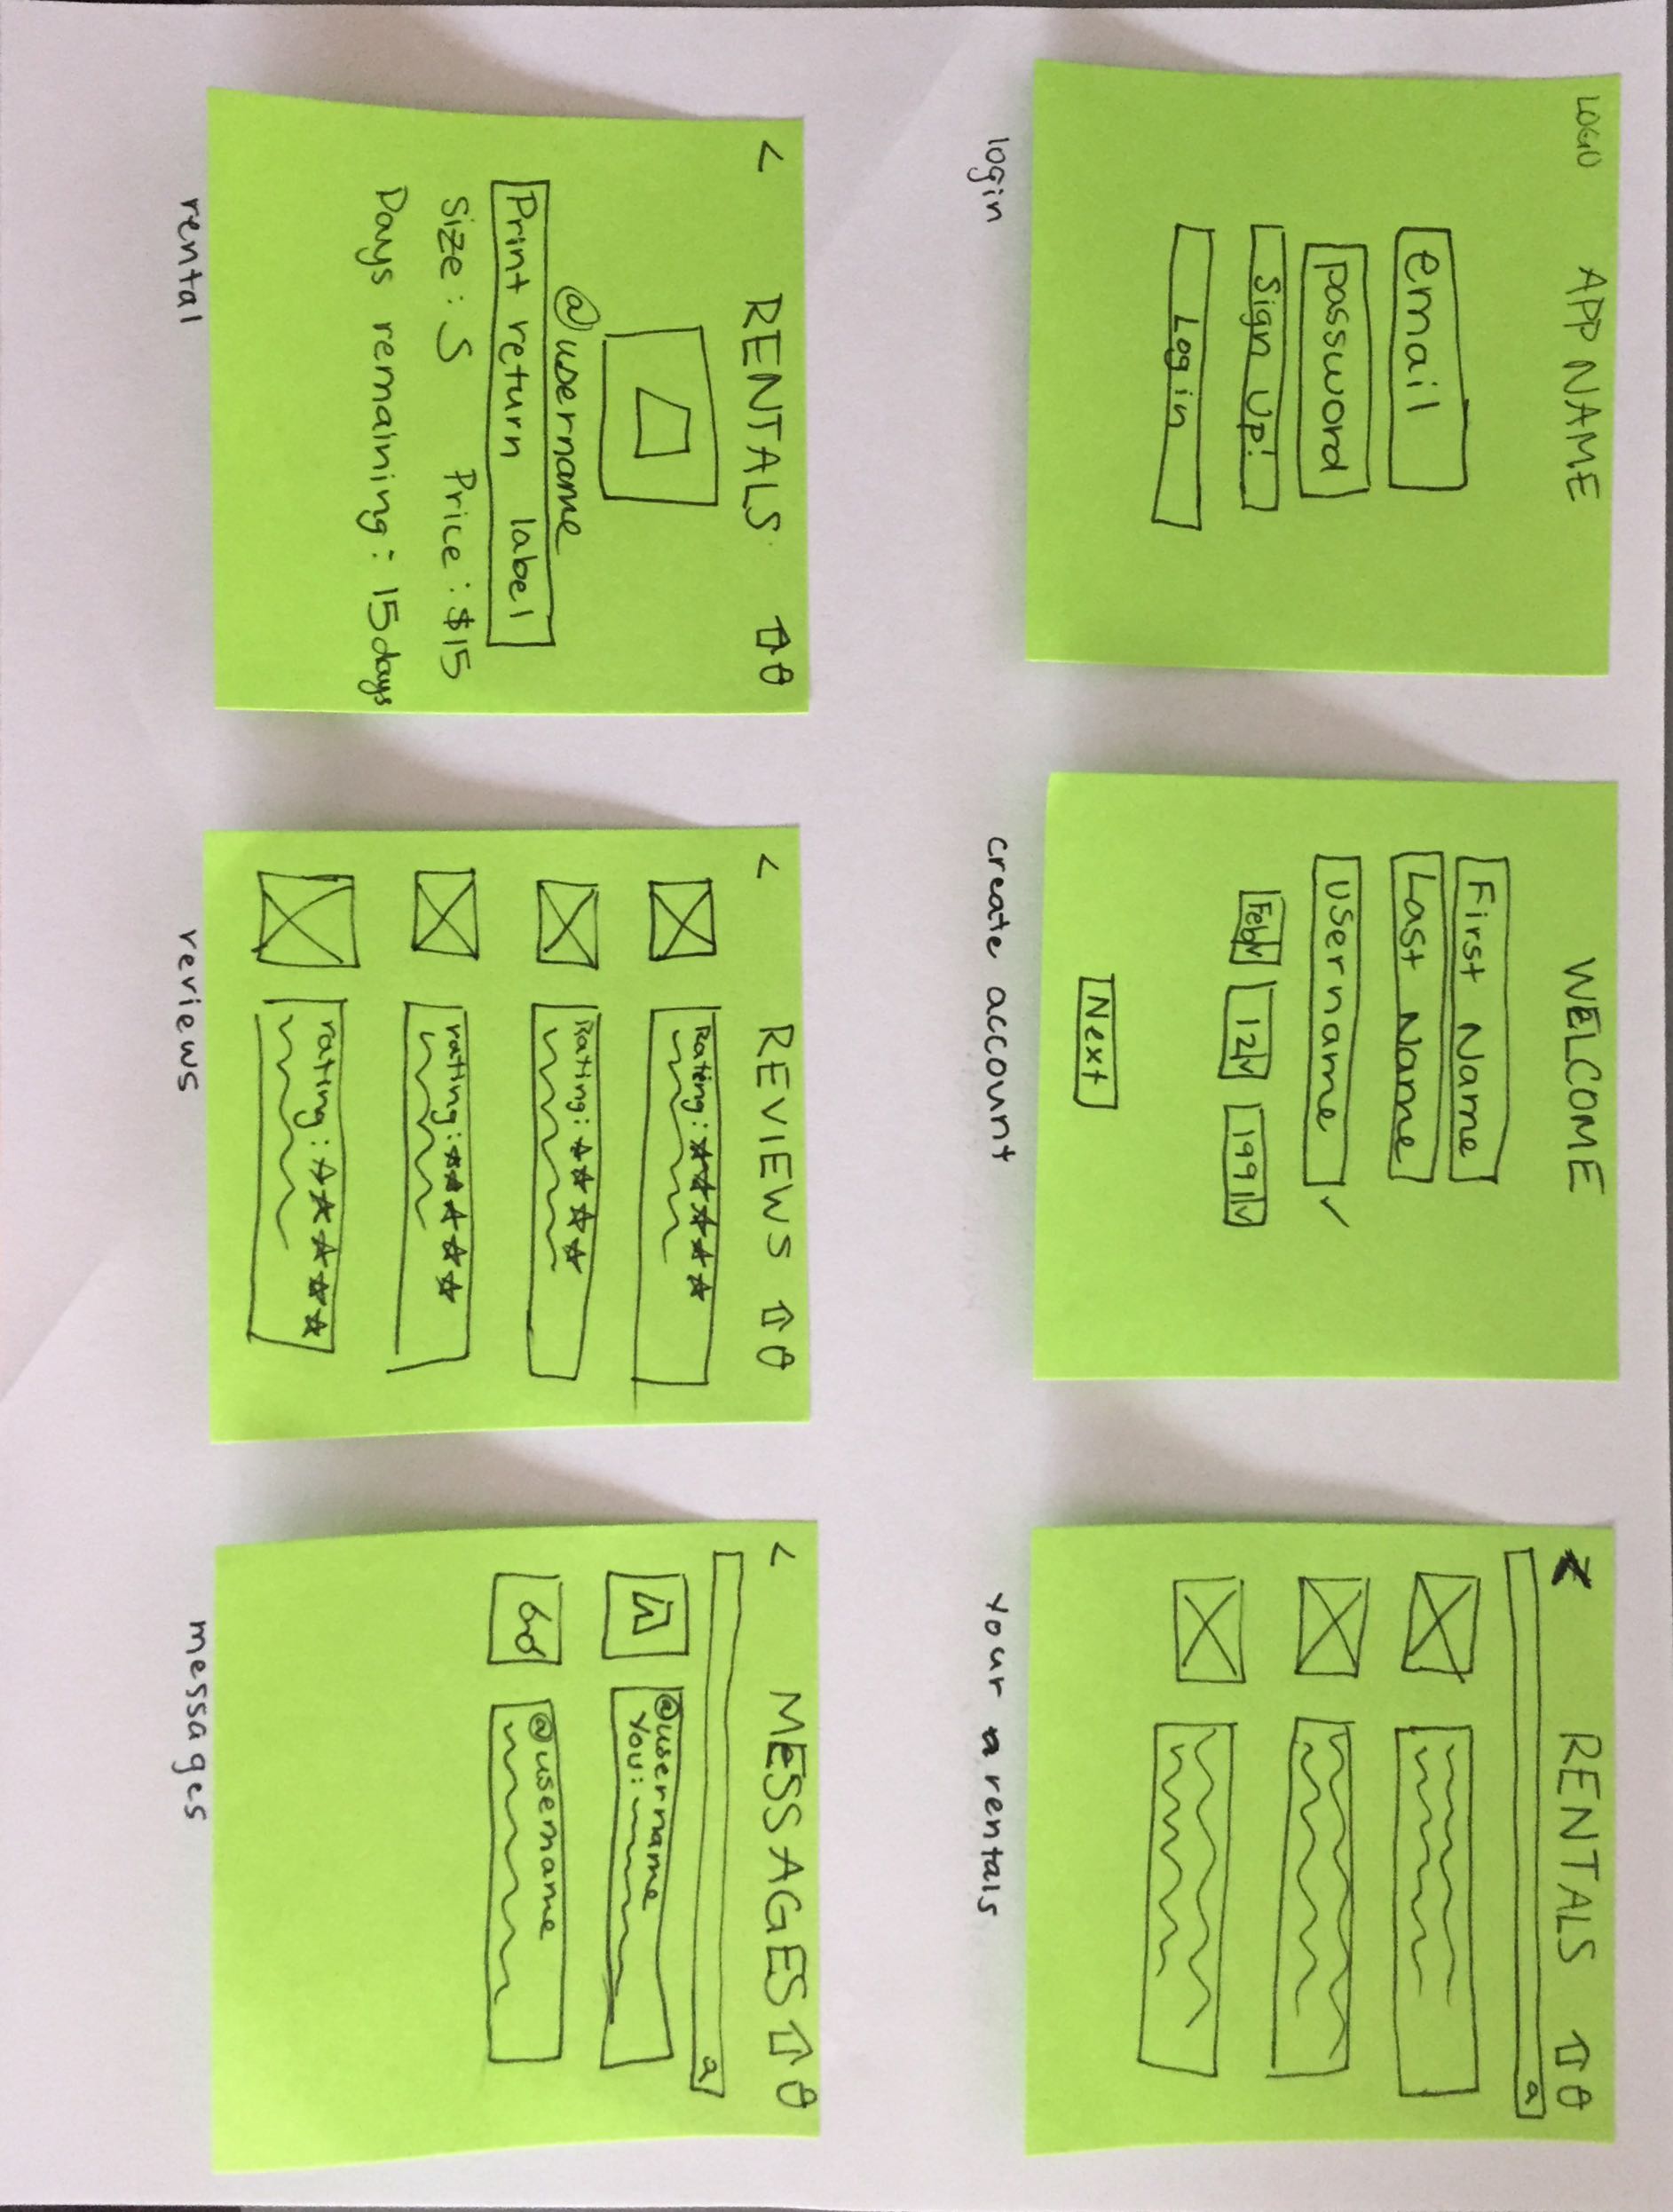 LOGO APP NAME
email
password
Sign Up!
Login
login
WELCOME
First Name
Last Name
username ✓
Feb 12 1991
Next
create account
RENTALS
your rentals
< RENTALS
@username
Print return label
Size: S Price: $15
Days remaining: 15days
rental
< REVIEWS
Rating: ☆☆☆☆☆
Rating: ☆☆☆☆
rating: ☆☆☆☆☆
rating: ☆☆☆☆☆
reviews
< MESSAGES
@username
You:
@username
messages